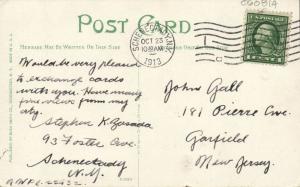 060814
POST CARD
MESSAGE MAY BE WRITTEN ON THIS SIDE
SCHENECTADY, N.Y.
OCT 23
10 30 AM
1913
Would be very pleased
to exchange cards
with you. Have many
fine views from my
city.
Stephen K. Zasada
93 Foster Ave
Schenectady
N.Y.
John Gall
181 Pierce Ave.
Garfield
New Jersey.